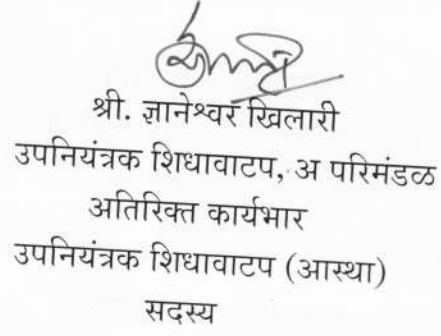 श्री. ज्ञानेश्वर खिलारी
उपनियंत्रक शिधावाटप, अ परिमंडळ
अतिरिक्त कार्यभार
उपनियंत्रक शिधावाटप (आस्था)
सदस्य